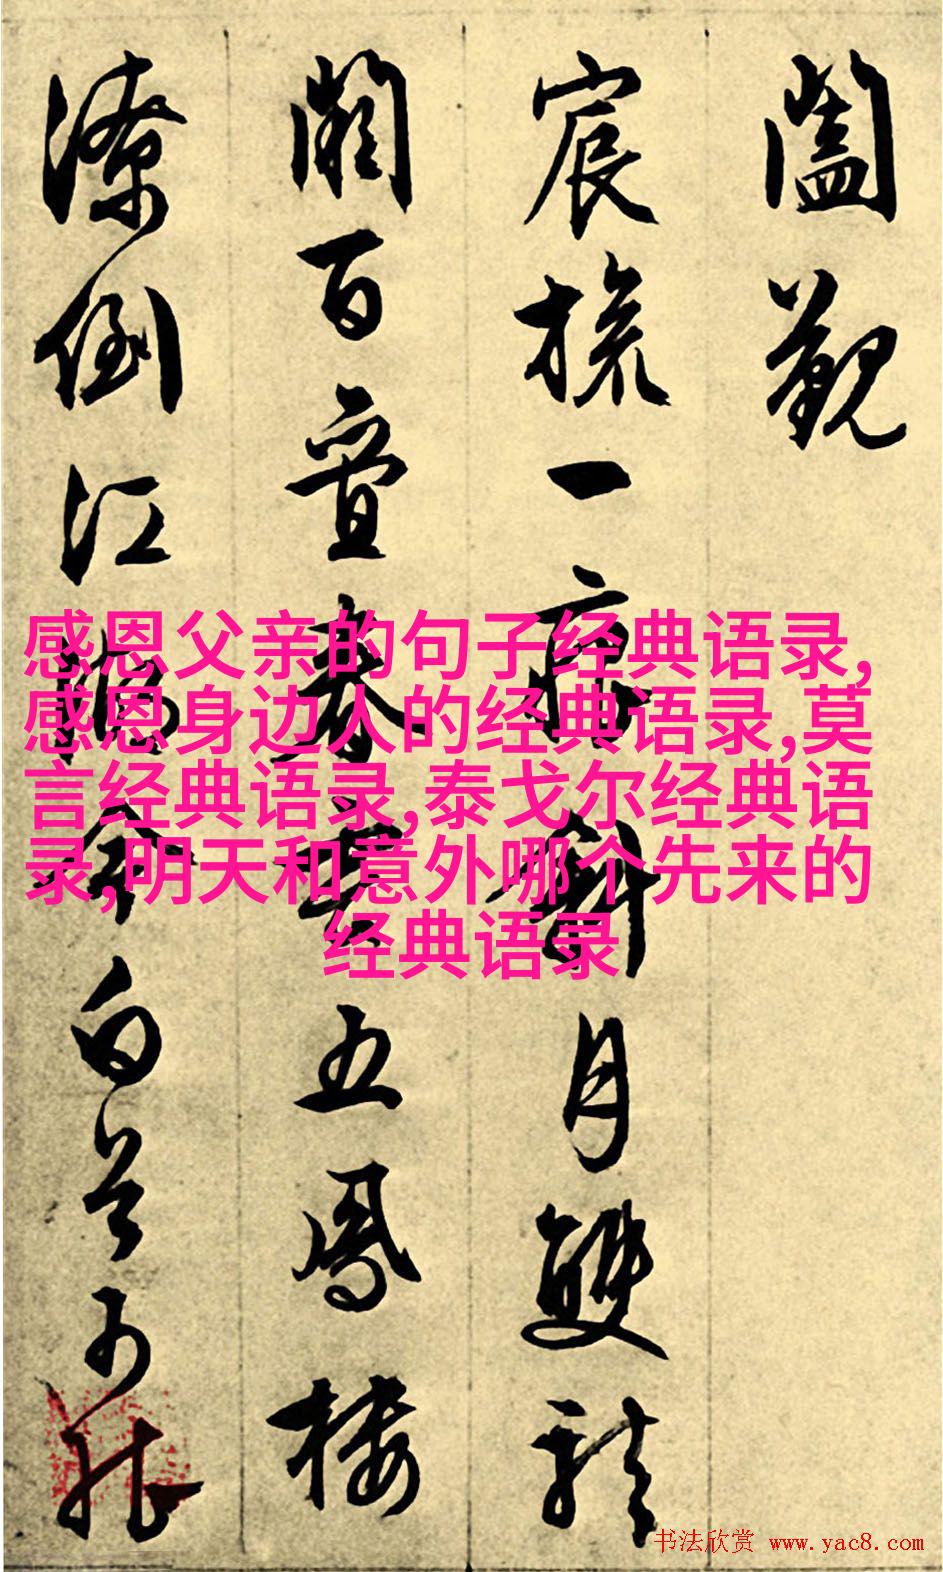 闔覲
宸旒一痕斜月雙龍
闕百疊春雲五鳳樓
潦倒江湖今白首可能
感恩父亲的句子经典语录,
感恩身边人的经典语录,莫
言经典语录,泰戈尔经典语
录,明天和意外哪个先来的
经典语录
书法欣赏 www.yac8.com